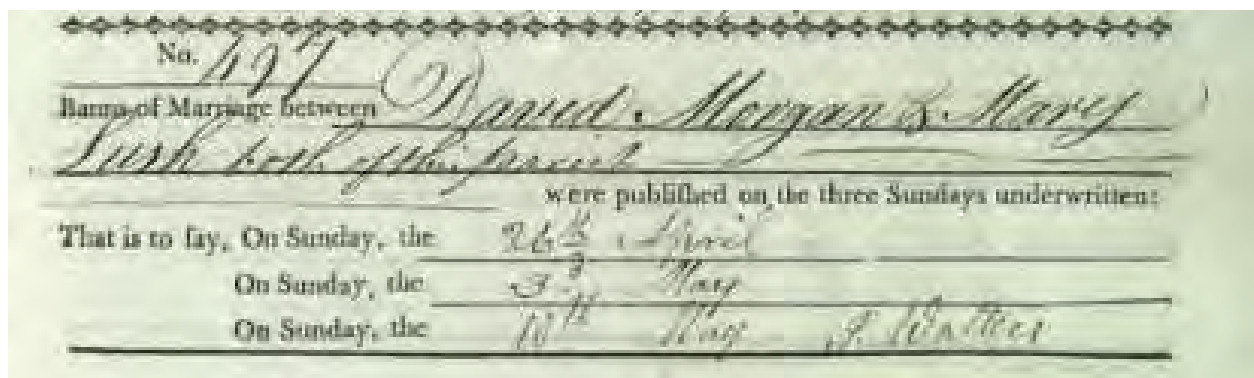 No. 497
Banns of Marriage between David Morgan & Mary
Lush both of this parish
were publiſhed on the three Sundays underwritten:
That is to ſay, On Sunday, the 26th April
On Sunday, the 3d May
On Sunday, the 10th May J. Watters